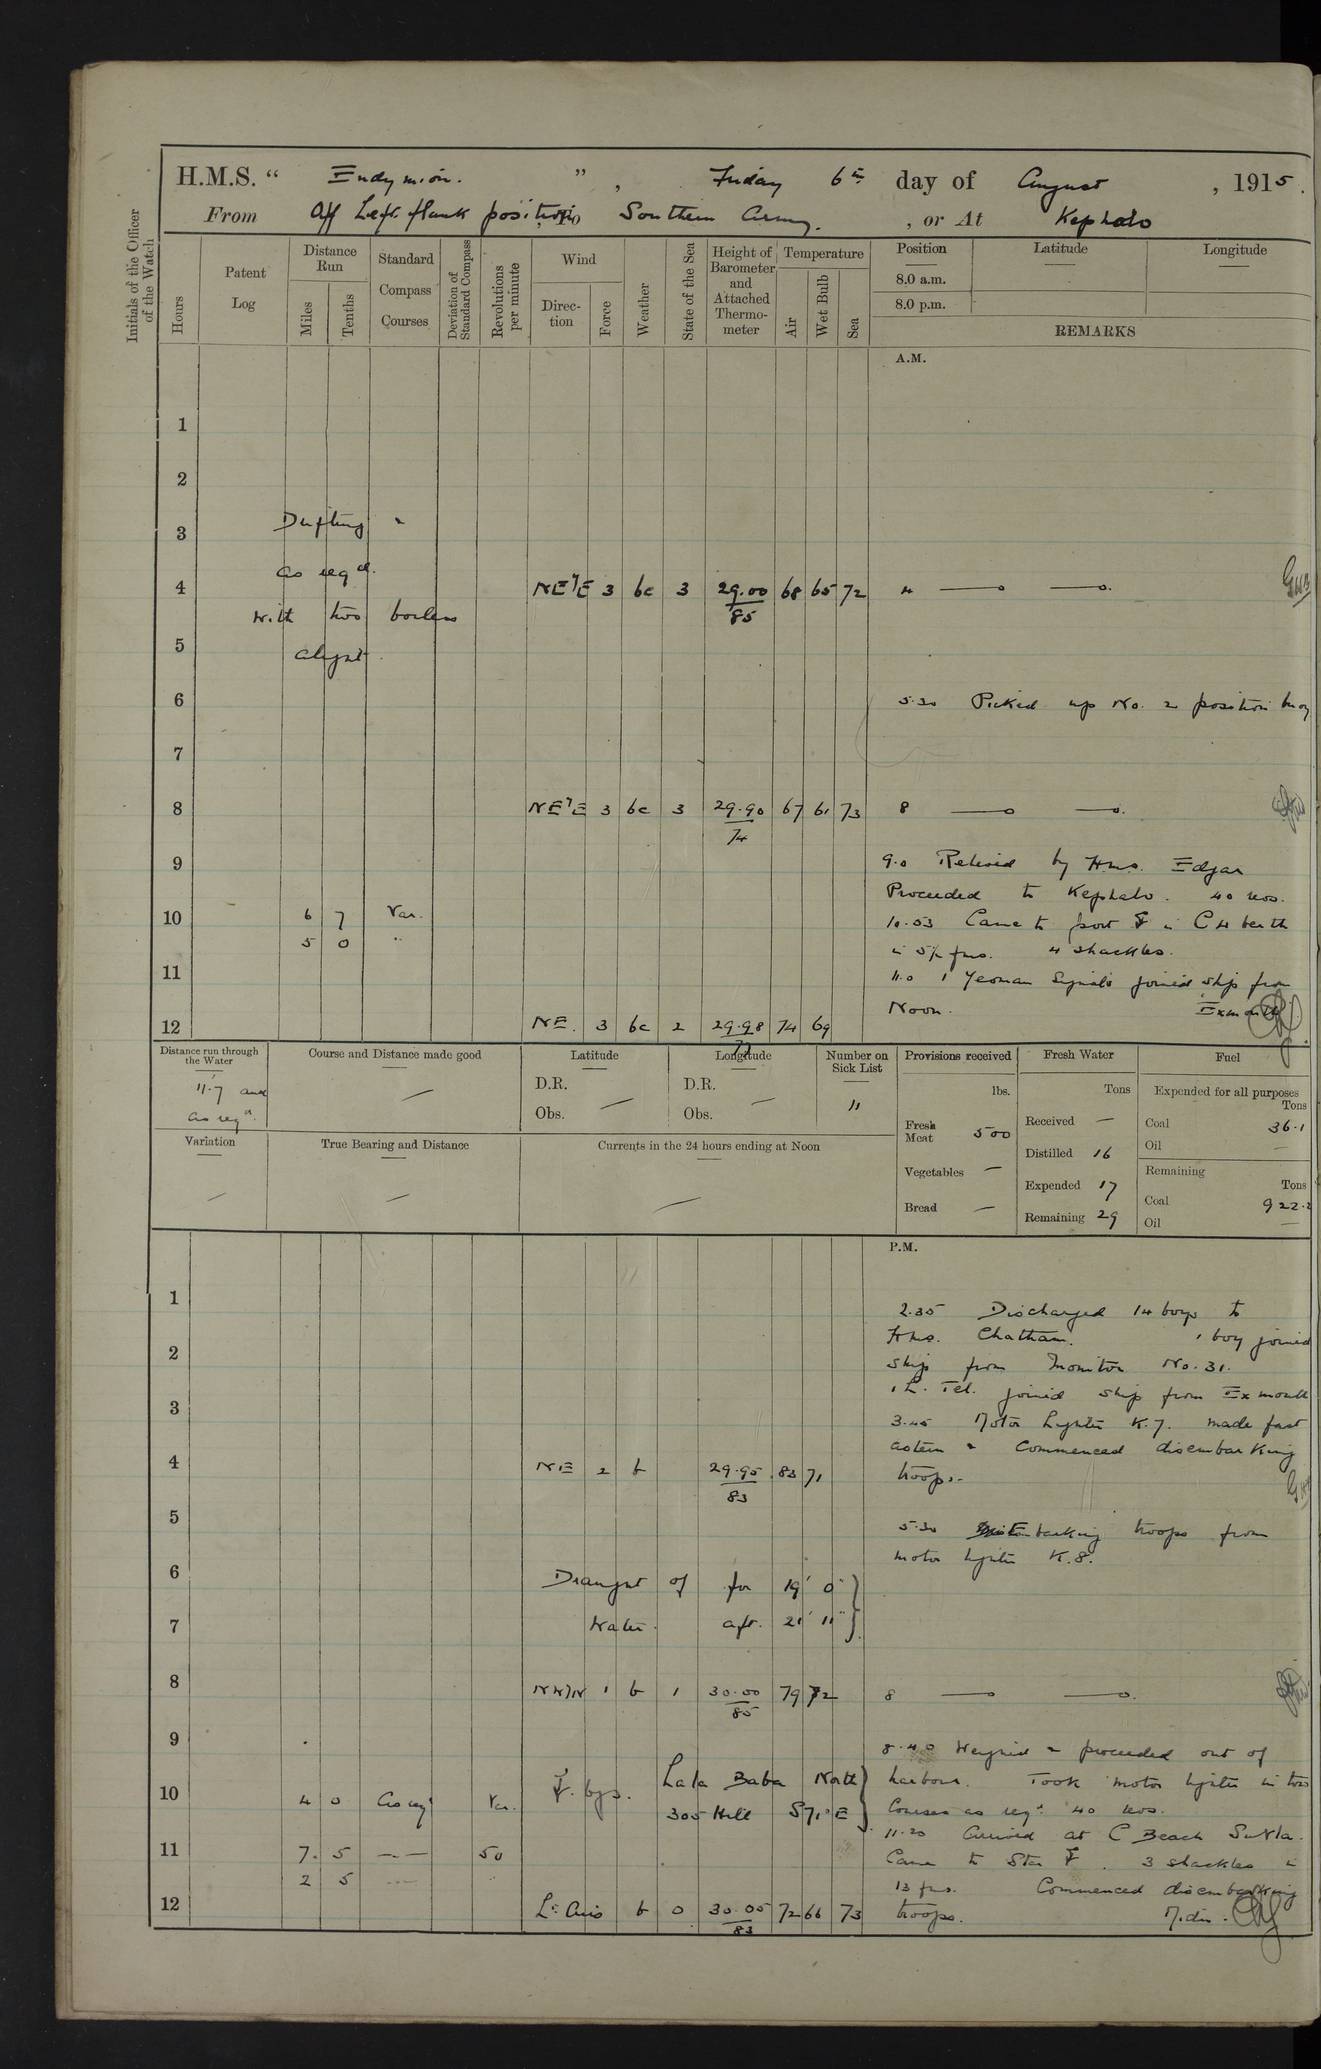 H.M.S. “ Endymion. ” , Friday 6th day of August , 1915.
From Off Left flank position To Southern Army. , or At Kephalo
Initials of the Officer of the Watch
Hours
Patent Log
Distance Run
Miles
Tenths
Standard Compass Courses
Deviation of Standard Compass
Revolutions per minute
Wind
Direction
Force
Weather
State of the Sea
Height of Barometer and Attached Thermometer
Temperature
Air
Wet Bulb
Sea
Position
Latitude
Longitude
8.0 a.m.
8.0 p.m.
REMARKS
A.M.
1
2
3 Drifting &
as reqd.
4 NE'/E 3 bc 3 29.00 68 65 72 4
85
with two boilers
5 alight
6 5.30 Picked up No. 2 position buoy
7
8 NE'/E 3 bc 3 29.90 67 61 73 8
74
9 9.0 Relieved by H.M.S. Edgar
Proceeded to Kephalo. 40 revs.
10 6 7 Var. 10.53 Came to port in C4 berth
5 0 " in 5½ fms. 4 shackles.
11 11.0 1 Yeoman Signals joined ship from
Noon. Exmouth
12 NE. 3 bc 2 29.98 74 69
77
Distance run through the Water
11.7 and
as reqd.
Course and Distance made good
—
Latitude
D.R.
Obs. —
Longitude
D.R.
Obs. —
Number on Sick List
11
Variation
—
True Bearing and Distance
—
Currents in the 24 hours ending at Noon
—
Provisions received
lbs.
Fresh Meat 500
Vegetables —
Bread —
Fresh Water
Tons
Received —
Distilled 16
Expended 17
Remaining 29
Fuel
Expended for all purposes
Tons
Coal 36.1
Oil —
Remaining
Tons
Coal 922.2
Oil —
P.M.
1 2.35 Discharged 14 boys to
H.M.S. Chatham. 1 boy joined
2 ship from Monitor No. 31.
1 L. Tel. joined ship from Exmouth
3 3.45 Motor Lighter K.7. made fast
astern & Commenced disembarking
4 NE 2 b 29.95 83 71 troops.
83
5 5.30 Embarking troops from
motor lighter K.8.
6 Draught of for 19' 0"
7 Water. aft. 21' 11"
8 1 b 1 30.00 79 72 8
85
9 8.40 Weighed & proceeded out of
Lala Baba North harbour. Took motor lighter in tow
10 4 0 As reqd Var. bgs. 305 Hill S71°E Courses as reqd. 40 revs.
11.20 Arrived at C Beach Suvla.
11 7. 5 50 Came to Star. 3 shackles in
2 5 13 fms. Commenced disembarking
12 Lt Airs b 0 30.05 72 66 73 troops. Midn.
83